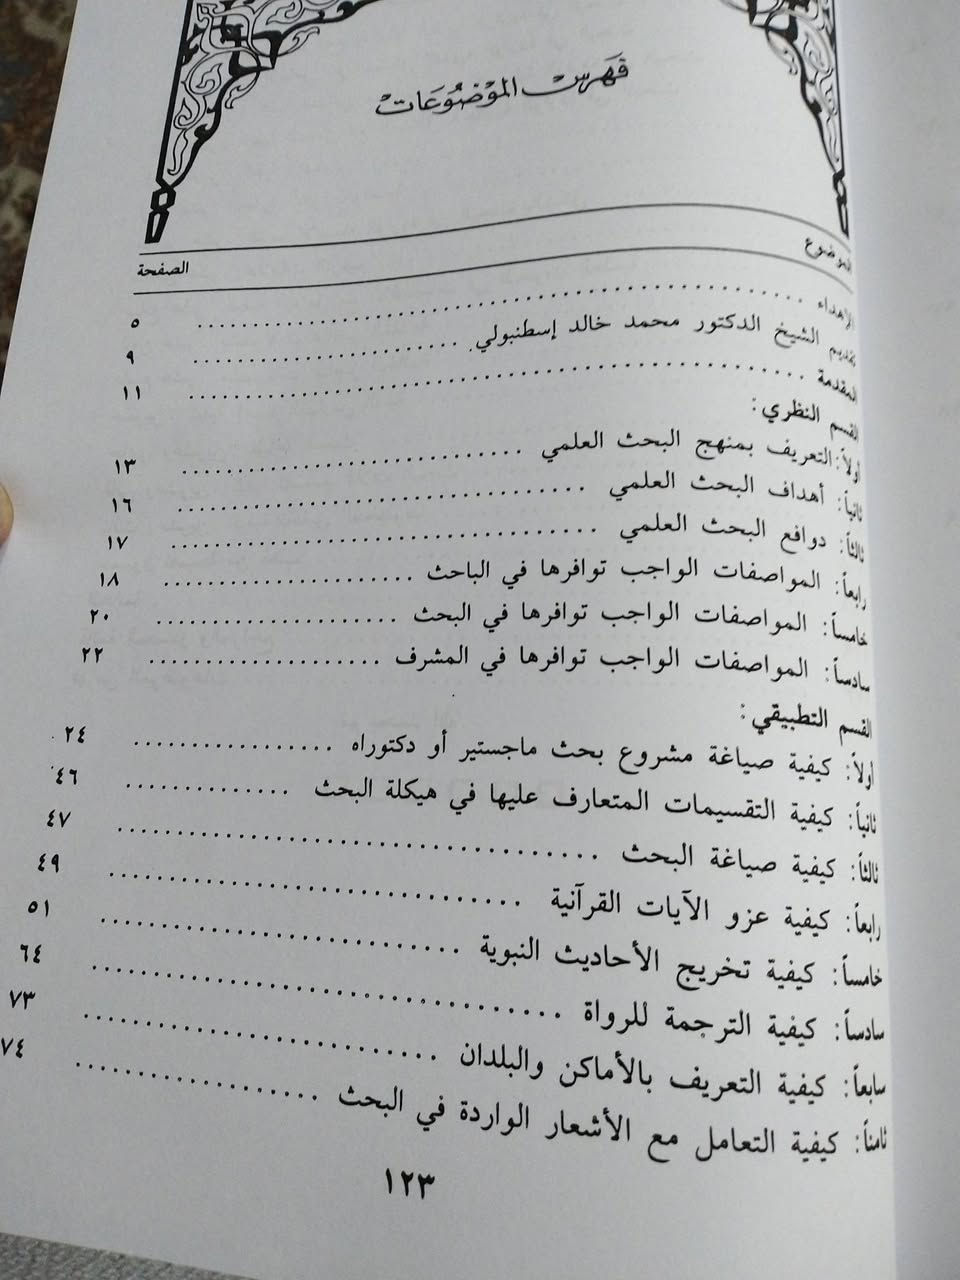 فهرس الموضوعات
الموضوع الصفحة
الإهداء ٥
تقديم الشيخ الدكتور محمد خالد إسطنبولي ٩
المقدمة ١١
القسم النظري:
أولاً: التعريف بمنهج البحث العلمي ١٣
ثانياً: أهداف البحث العلمي ١٦
ثالثاً: دوافع البحث العلمي ١٧
رابعاً: المواصفات الواجب توافرها في الباحث ١٨
خامساً: المواصفات الواجب توافرها في البحث ٢٠
سادساً: المواصفات الواجب توافرها في المشرف ٢٢
القسم التطبيقي:
أولاً: كيفية صياغة مشروع بحث ماجستير أو دكتوراه ٢٤
ثانياً: كيفية التقسيمات المتعارف عليها في هيكلة البحث ٤٦
ثالثاً: كيفية صياغة البحث ٤٧
رابعاً: كيفية عزو الآيات القرآنية ٤٩
خامساً: كيفية تخريج الأحاديث النبوية ٥١
سادساً: كيفية الترجمة للرواة ٦٤
سابعاً: كيفية التعريف بالأماكن والبلدان ٧٣
ثامناً: كيفية التعامل مع الأشعار الواردة في البحث ٧٤
١٢٣